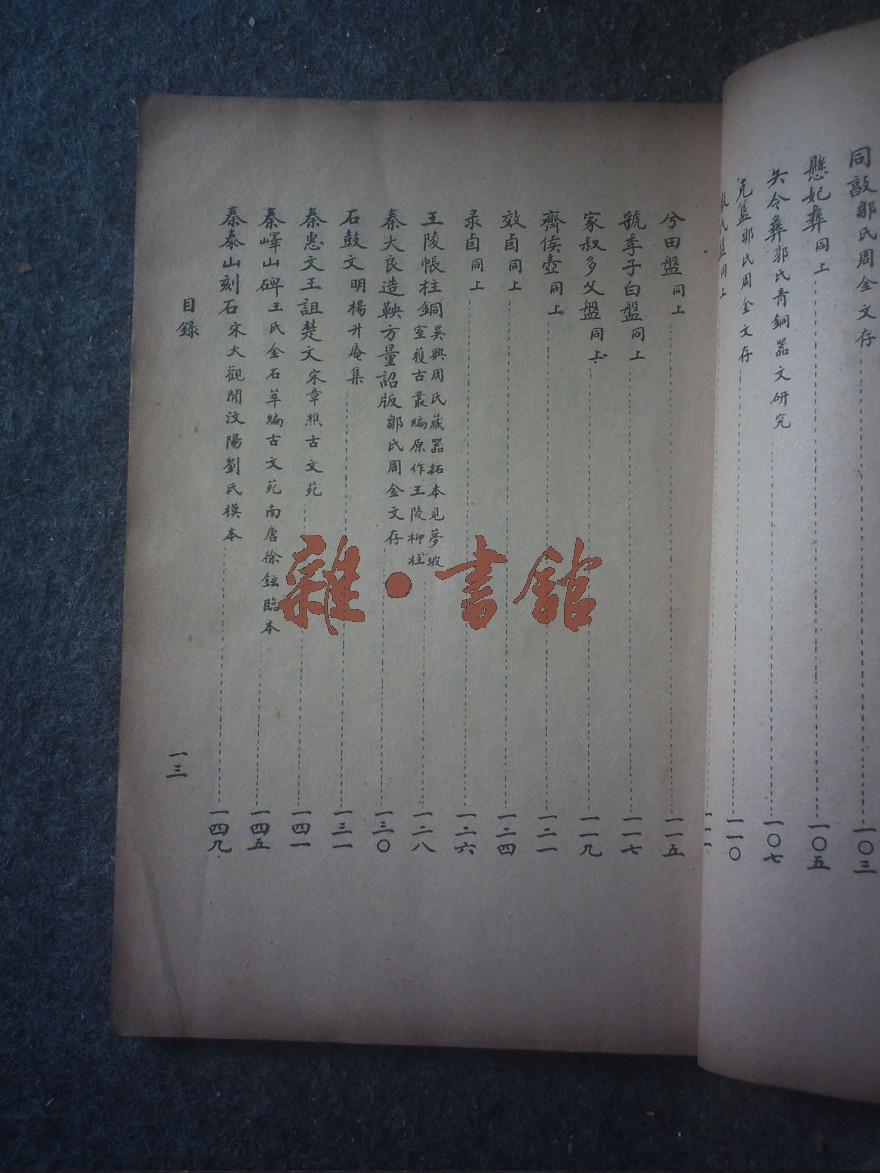 同𣪘鄒氏周金文存 一〇三
縣妃彝同上 一〇五
矢令彝郭氏青銅器文研究 一〇七
克盨鄒氏周金文存 一一〇
氏盤同上
兮田盤同上 一一五
虢季子白盤同上 一一七
家叔多父盤同上 一一九
齊侯壺同上 一二一
效卣同上 一二四
录卣同上 一二六
王陵帳柱銅吳興周氏藏器拓本見夢坡室獲古叢編原作王陵柳柱 一二八
秦大良造鞅方量詔版鄒氏周金文存 一三〇
石鼓文明楊升庵集 一三一
秦惠文王詛楚文宋章樵古文苑 一四一
秦嶧山碑王氏金石萃編古文苑南唐徐鉉臨本 一四五
秦泰山刻石宋大觀間汶陽劉氏模本 一四九
目錄
一三
雜·書館